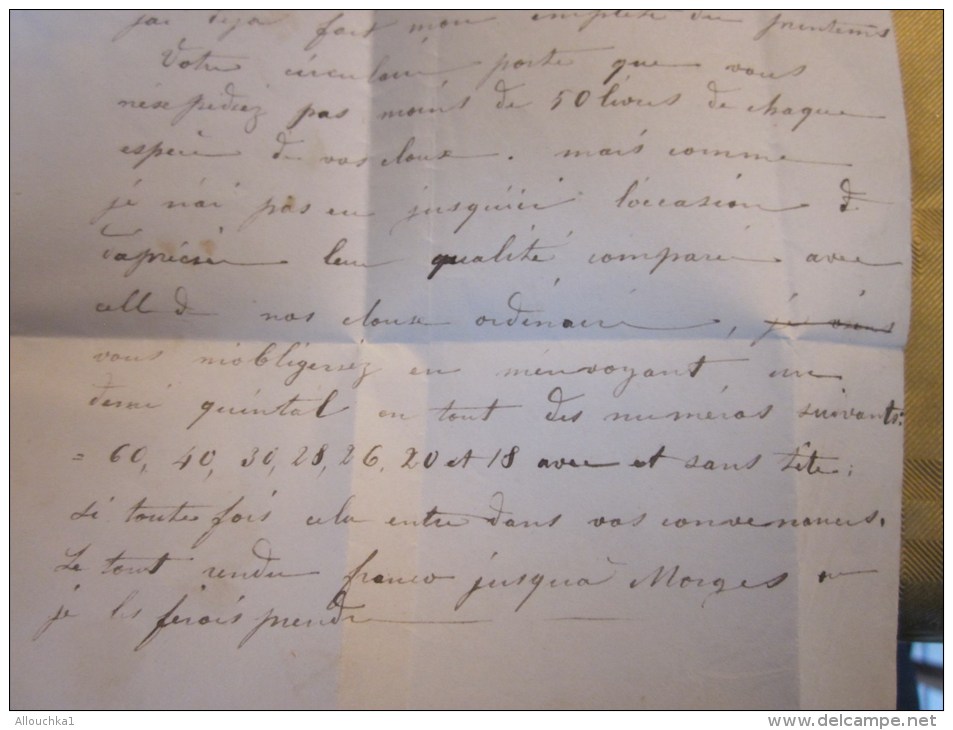 j'ai deja fait mon emplete du printems
Votre circulair porte que vous
n'éxpediez pas moins de 50 livres de chaque
espéce de vos cloux. mais comme
je n'ai pas eu jusqu'ici l'occasion d
d'aprécier leur qualité comparé avec
cell d nos cloux ordinair, je vous
vous m'obligeriez en m'envoyant un
demi quintal en tout des numéros suivants:
= 60, 40, 30, 28, 26, 20 et 18 avec et sans tête;
si toute fois cela entre dans vos convenances.
Le tout rendu franco jusqu'a Morges
je les ferais prendre
Allouchka1
www.delcampe.net